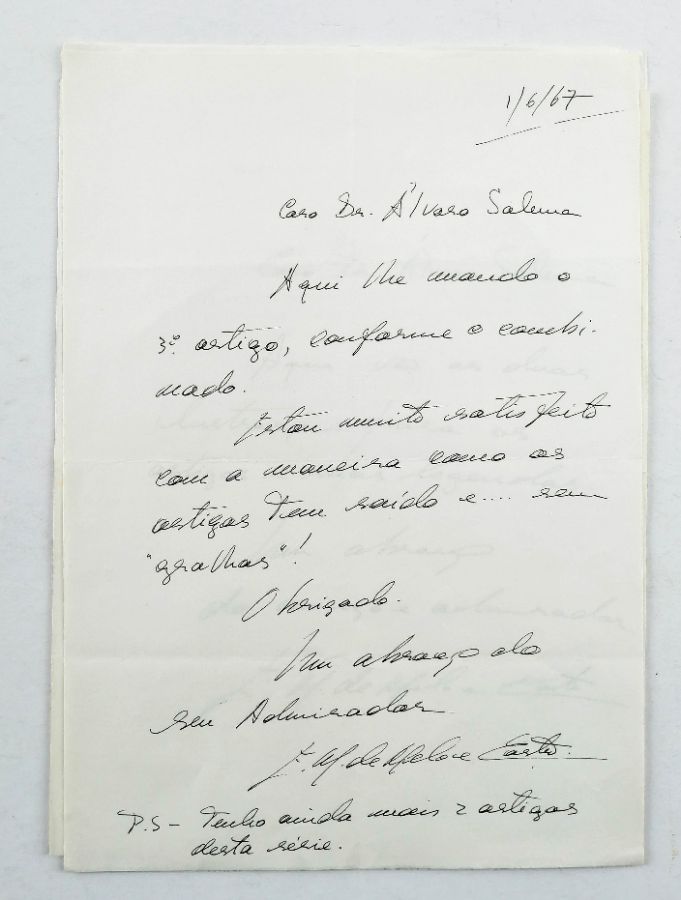 1/6/67
Caro Dr. Álvaro Salema
Aqui lhe mando o
3º. artigo, conforme o combi-
nado.
Estou muito satisfeito
com a maneira como os
artigos tem saído e.... sem
"gralhas"!
Obrigado.
Um abraço do
seu Admirador
E. M. de Melo e Castro.
P.S - Tenho ainda mais 2 artigos
desta série.